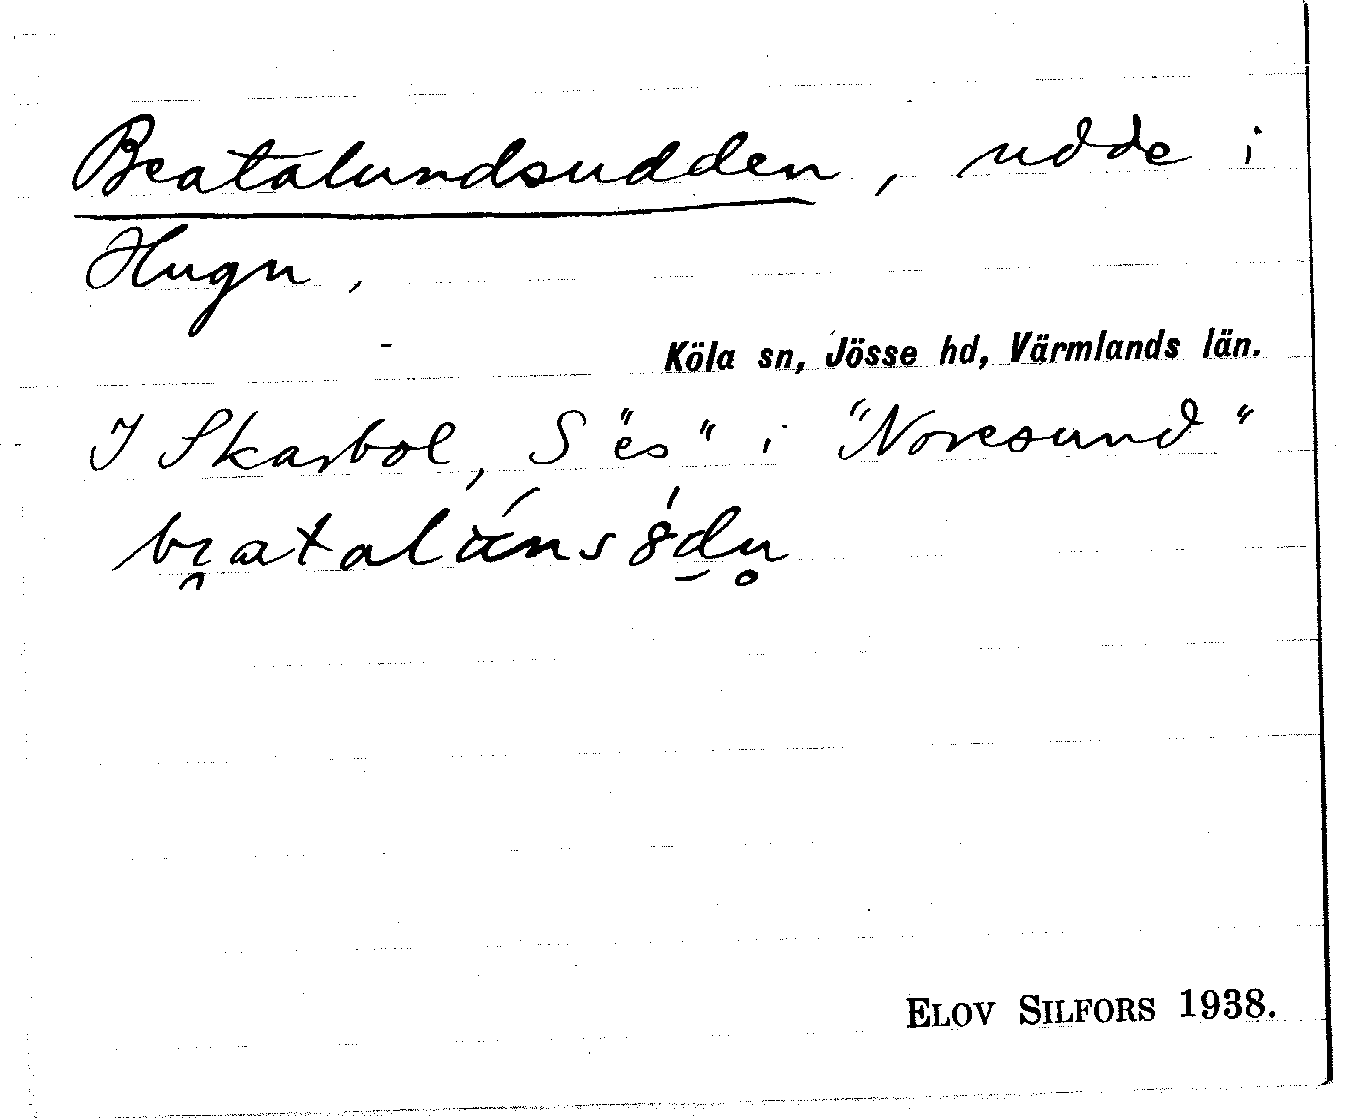 Beatalundsudden, udde i
Hugn.
Köla sn, Jösse hd, Värmlands län.
I Skarbol, S "es" i "Noresund"
ELOV SILFORS 1938.